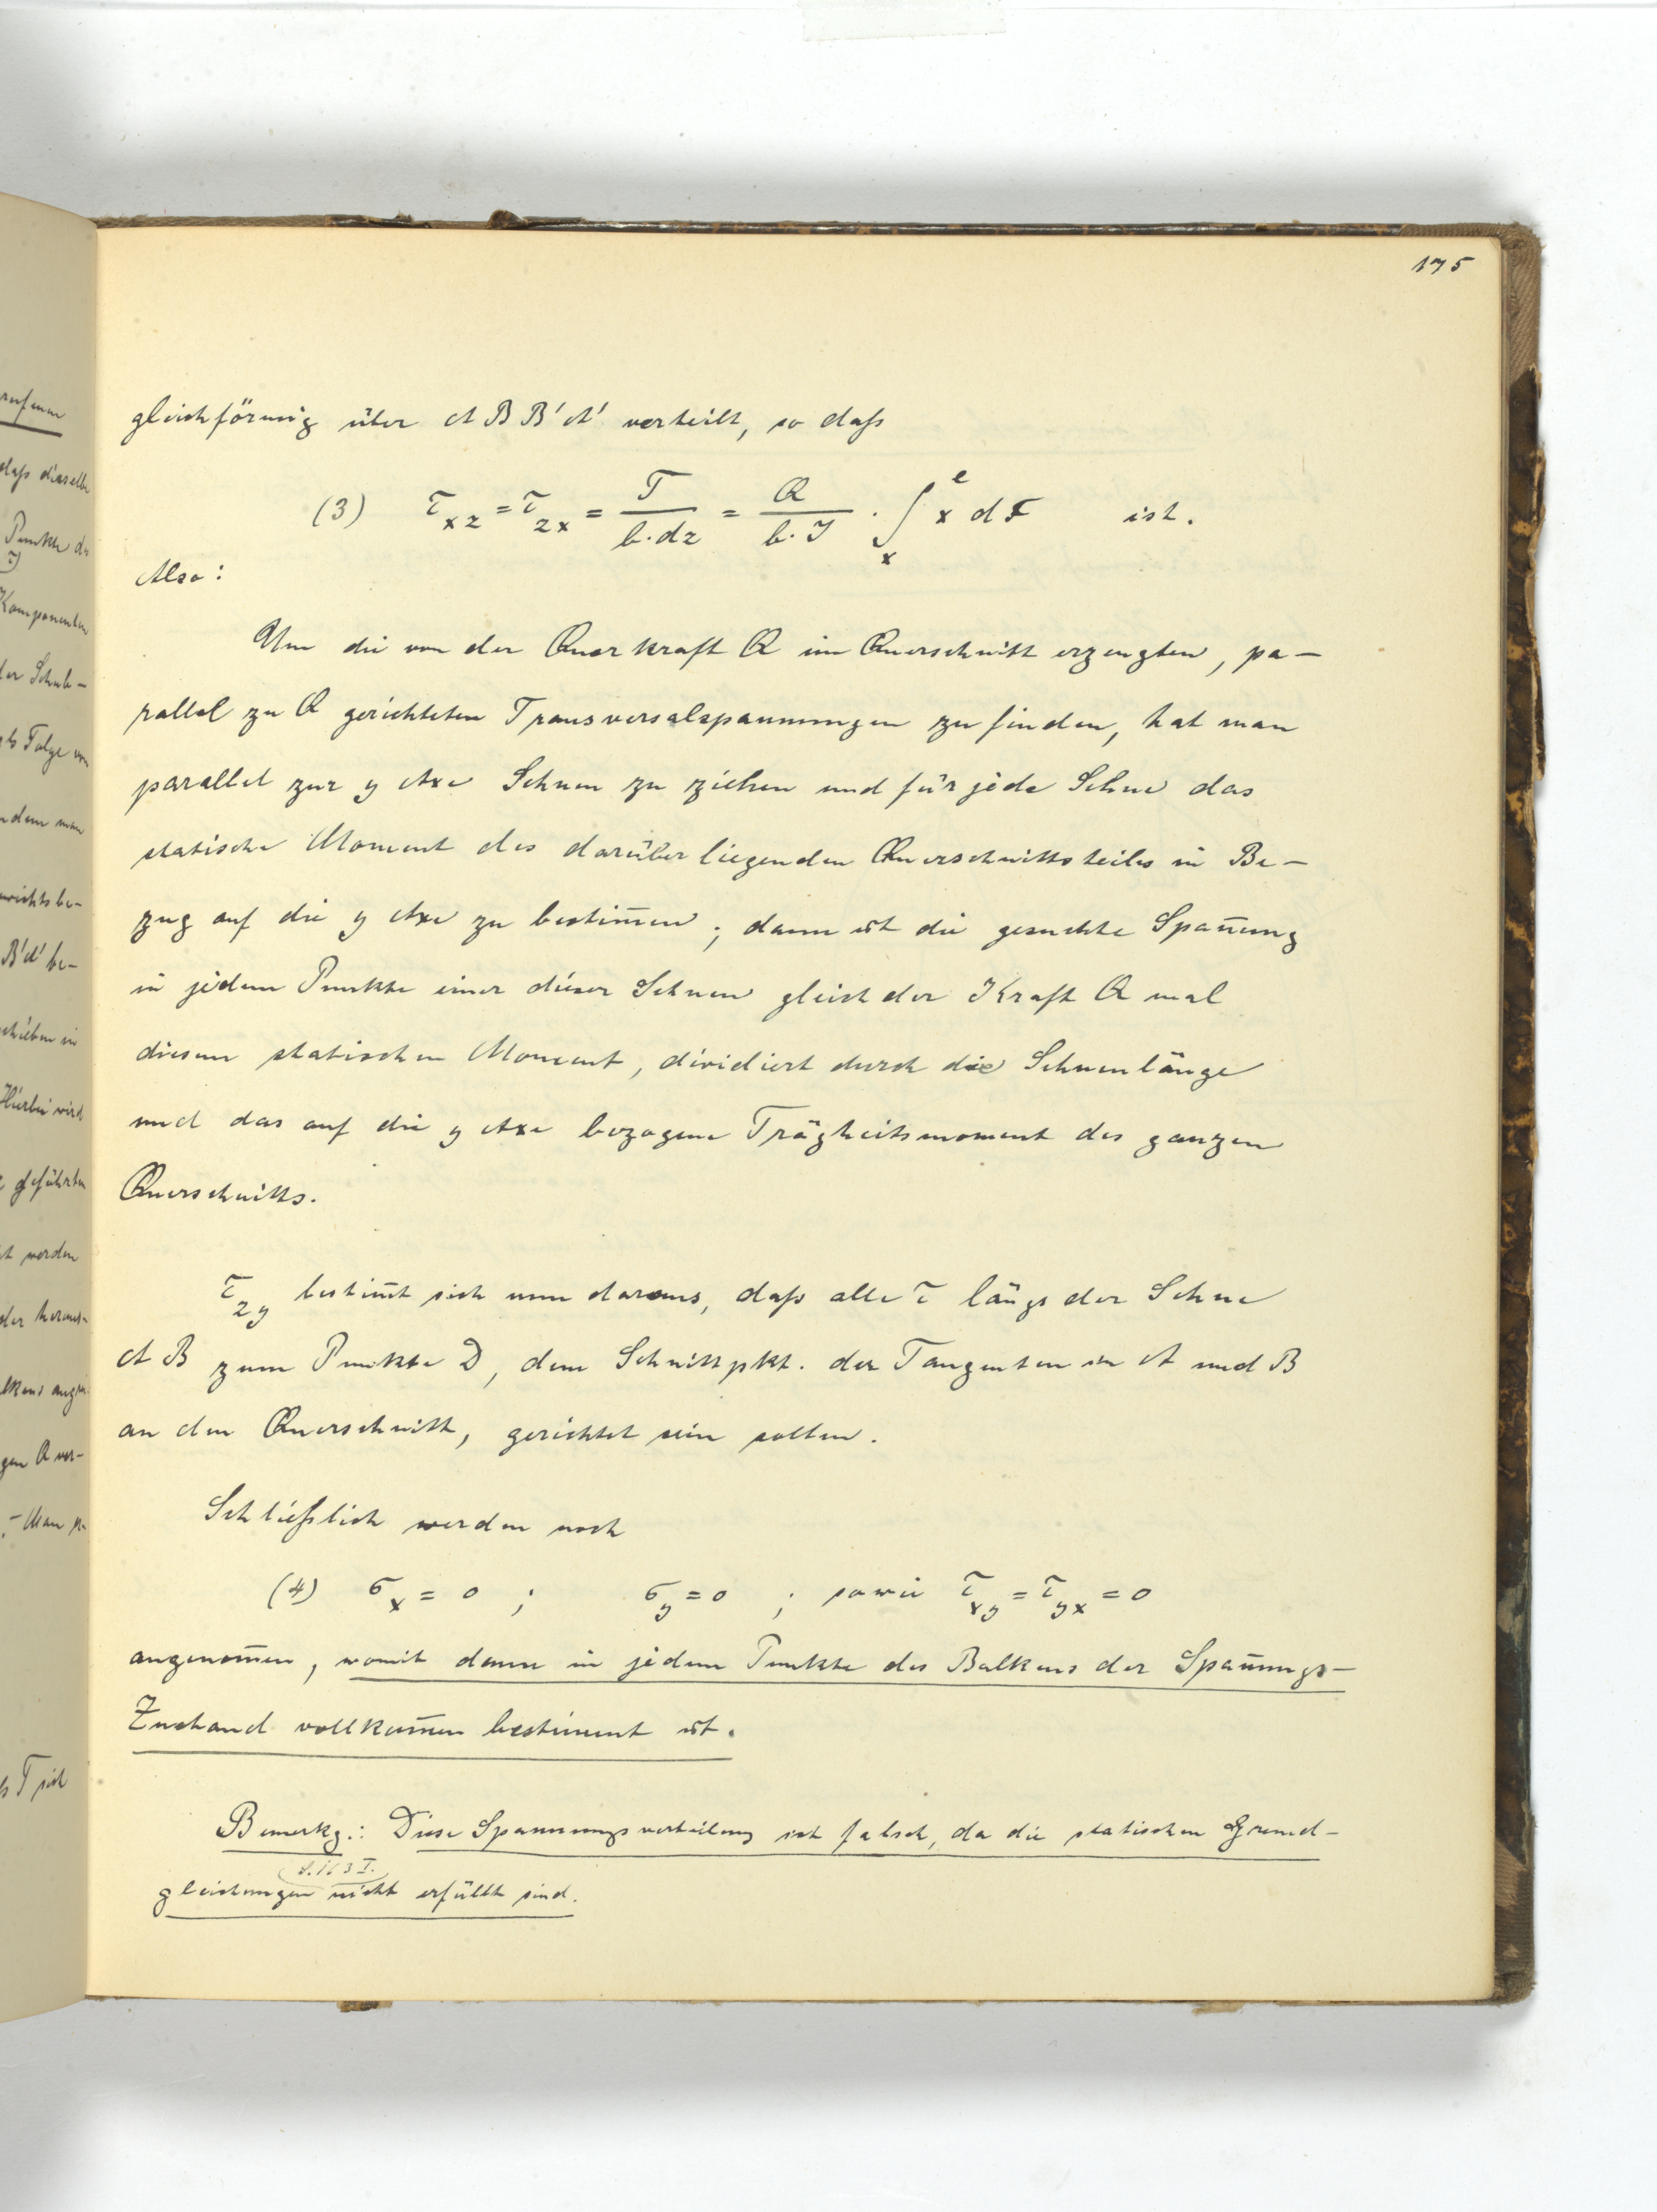 175
gleichförmig über A B B' A' verteilt, so daß
(3) τ_xz = τ_zx = T / (b·dz) = Q / (b·J) · ∫_x^e x dF ist.
Also:
Um die von der Querkraft Q im Querschnitt erzeugten, pa-
rallel zu Q gerichteten Transversalspannungen zu finden, hat man
parallel zur y Axe Sehnen zu ziehen und für jede Sehne das
statische Moment des darüber liegenden Querschnittsteiles in Be-
zug auf die y Axe zu bestim̅en; dann ist die gesuchte Span̅ung
in jedem Punkte einer dieser Sehnen gleich der Kraft Q mal
diesem statischen Moment, dividiert durch die Sehnenlänge
und das auf die y Axe bezogene Trägheitsmoment des ganzen
Querschnitts.
τ_zy bestim̅t sich nun daraus, daß alle τ längs der Sehne
A B zum Punkte D, dem Schnittpkt. der Tangenten in A und B
an den Querschnitt, gerichtet sein sollen.
Schließlich werden noch
(4) σ_x = 0 ; σ_y = 0 ; sowie τ_xy = τ_yx = 0
angenom̅en, womit dann in jedem Punkte des Balkens der Span̅ungs-
Zustand vollkom̅en bestimmt ist.
Bemerkg.: Diese Spannungsverteilung ist falsch, da die statischen Grund-
(S. 163 I.)
gleichungen nicht erfüllt sind.
daß dieselbe
Punkte de
Komponenten
der Schub-
ls Folge von
ndem man
wichtsbe-
B'A' be-
schieben in
Hierbei wird
geführten
t werden
der heraus-
gen Q ver-
- Man
s T sich